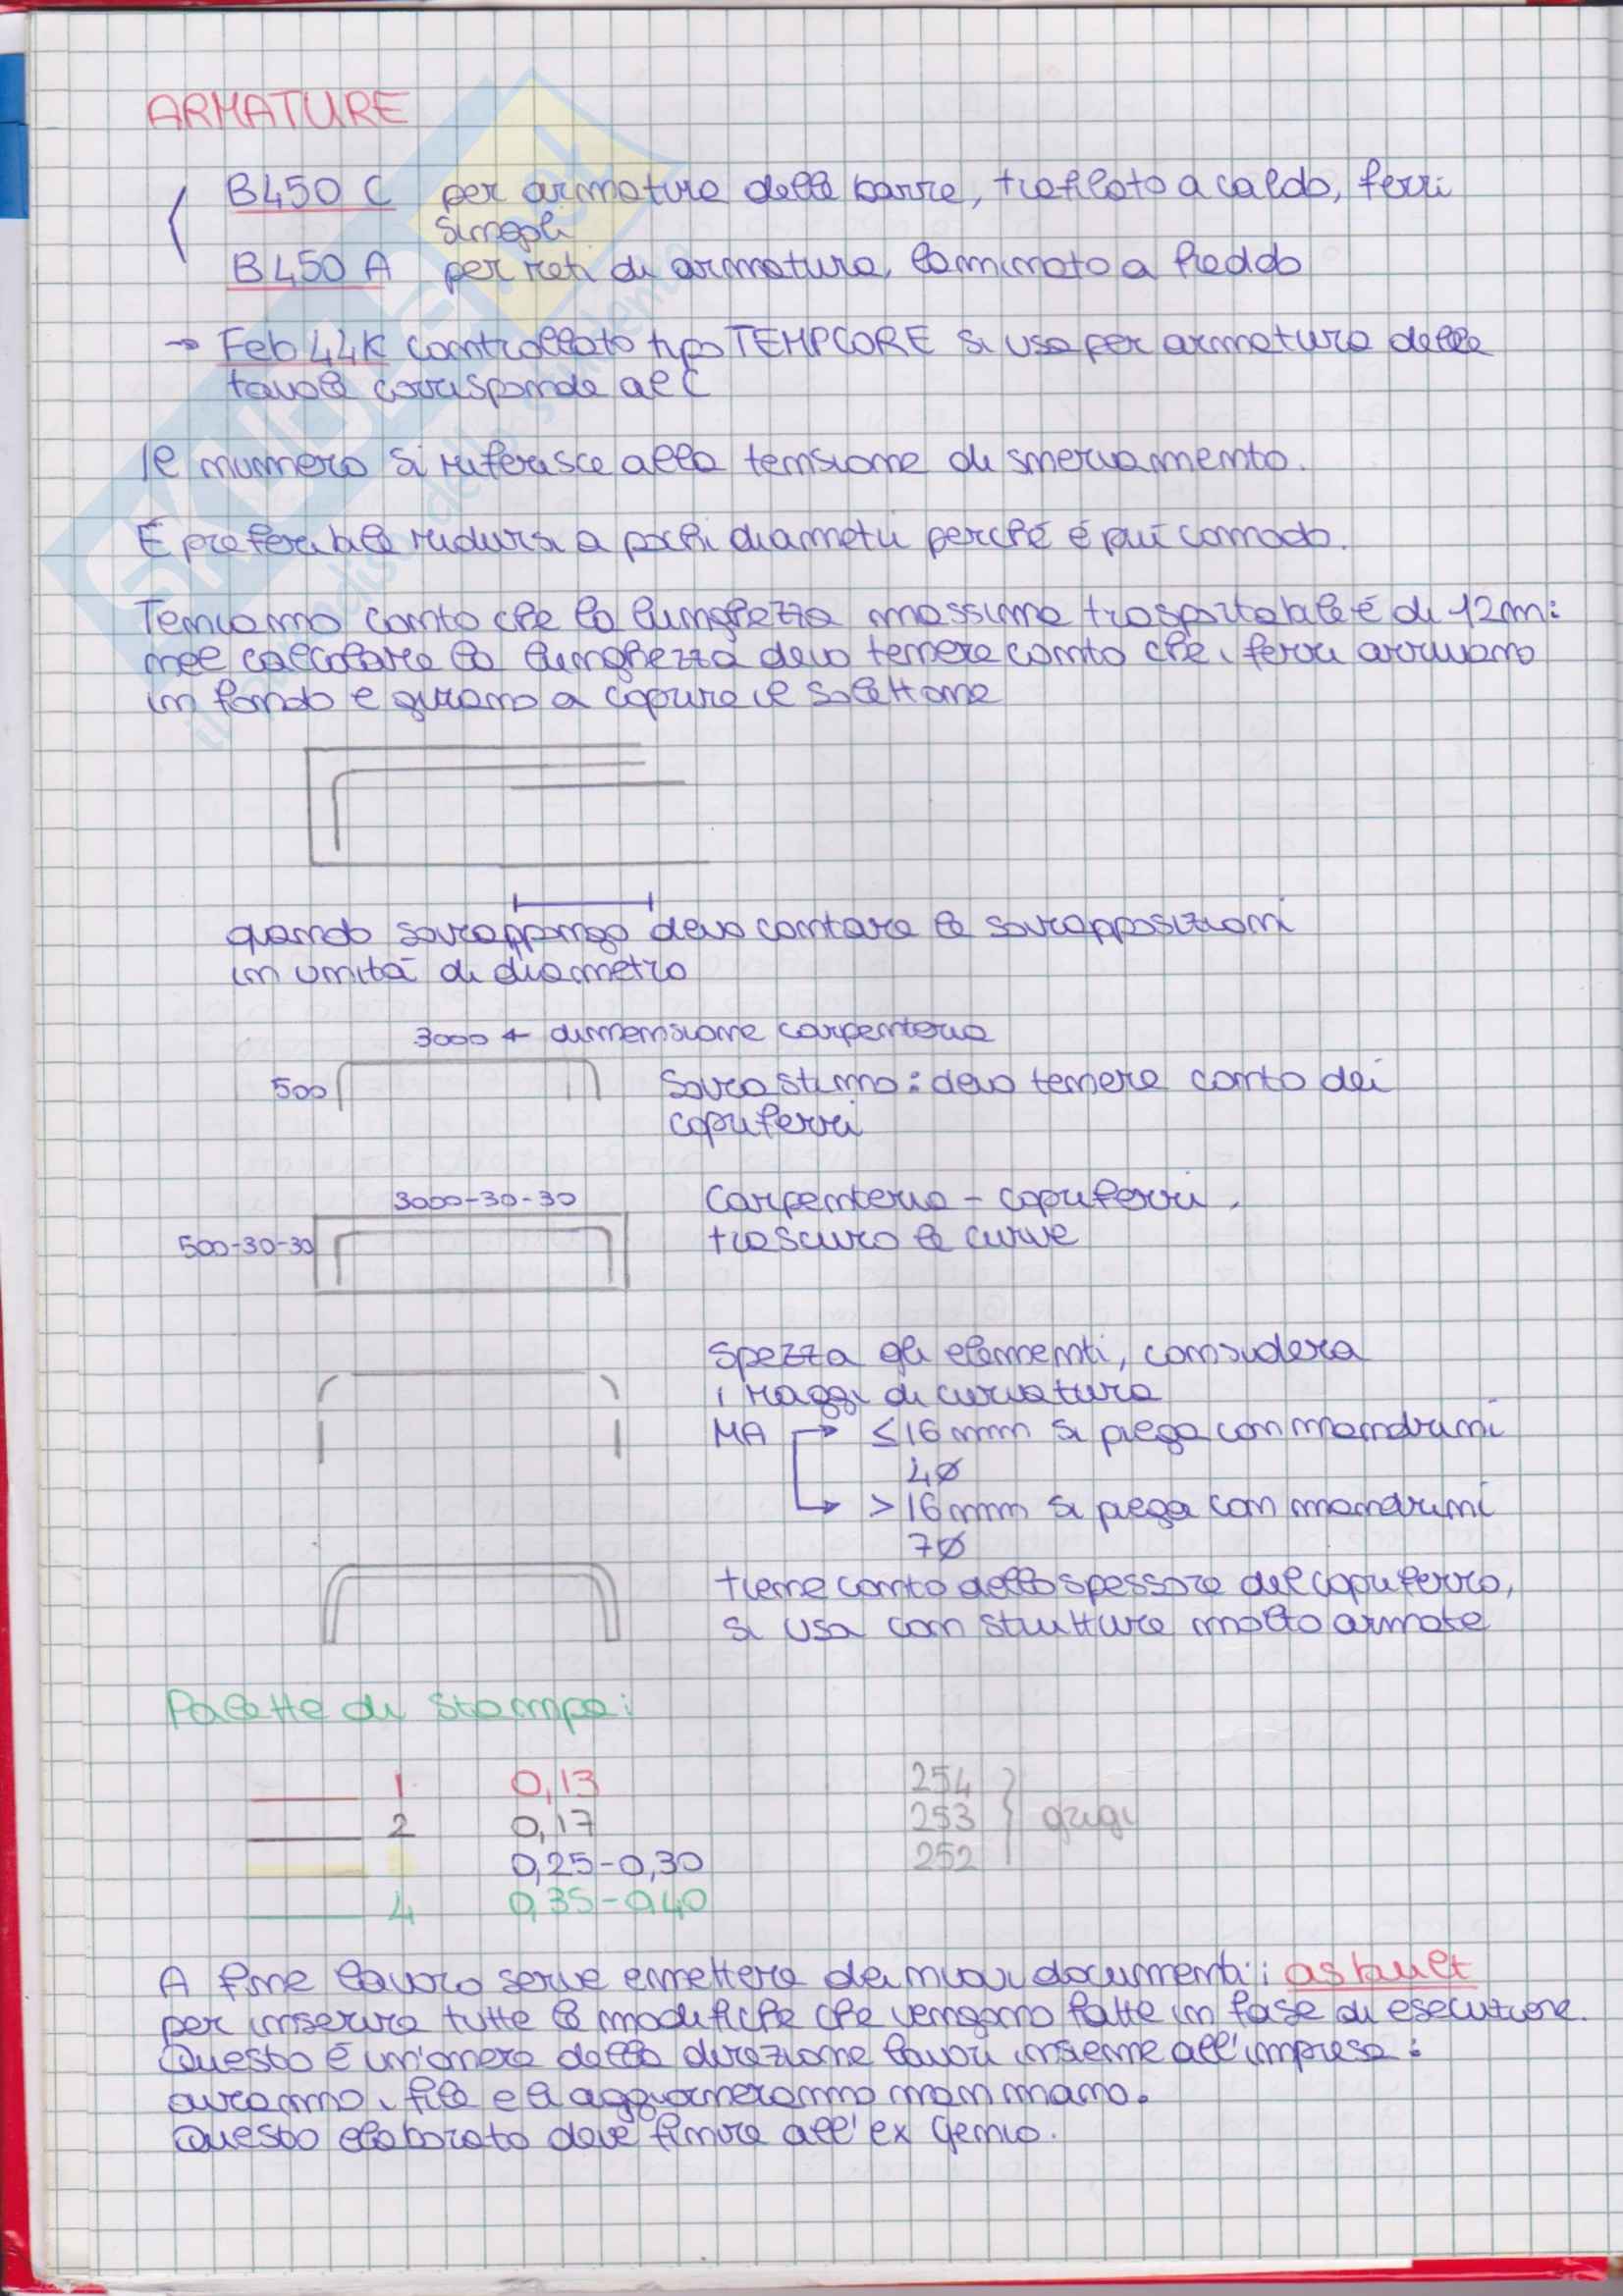 ARMATURE
B450 C per armature delle barre, trafilato a caldo, ferri
singoli
B450 A per reti di armatura, laminato a freddo
→ Feb44K controllato tipo TEMPCORE si usa per armatura delle
tavole corrisponde al C
Il numero si riferisce alla tensione di snervamento.
È preferibile ridursi a pochi diametri perché è più comodo.
Teniamo conto che la lunghezza massima trasportabile è di 12m:
nel calcolare la lunghezza devo tenere conto che i ferri arrivano
in fondo e girano a coprire il solettone
quando sovrappongo devo contare le sovrapposizioni
in unità di diametro
3000 ← dimensione carpenteria
500 Sovrastimo: devo tenere conto dei
copriferri
3000-30-30 Carpenteria - copriferri,
500-30-30 trascuro le curve
Spezza gli elementi, considera
i raggi di curvatura
MA → ≤16 mm si piega con mandrini
4Ø
→ >16 mm si piega con mandrini
7Ø
tiene conto dello spessore del copriferro,
si usa con strutture molto armate
Palette di stampa:
1 0,13 254
2 0,17 253 } grigi
0,25-0,30 252
4 0,35-0,40
A fine lavoro serve emettere dei nuovi documenti: as built
per inserire tutte le modifiche che vengono fatte in fase di esecuzione.
Questo è un'onere della direzione lavori insieme all'impresa:
avranno i file e li aggiorneranno man mano.
Questo elaborato deve finire all'ex Genio.